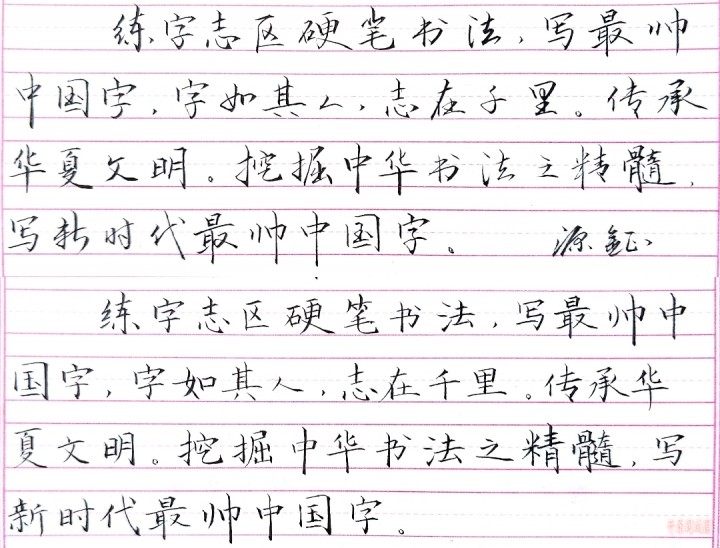 练字志区硬笔书法,写最帅
中国字,字如其人,志在千里。传承
华夏文明。挖掘中华书法之精髓,
写新时代最帅中国字。 源钲
练字志区硬笔书法,写最帅中
国字,字如其人,志在千里。传承华
夏文明。挖掘中华书法之精髓,写
新时代最帅中国字。